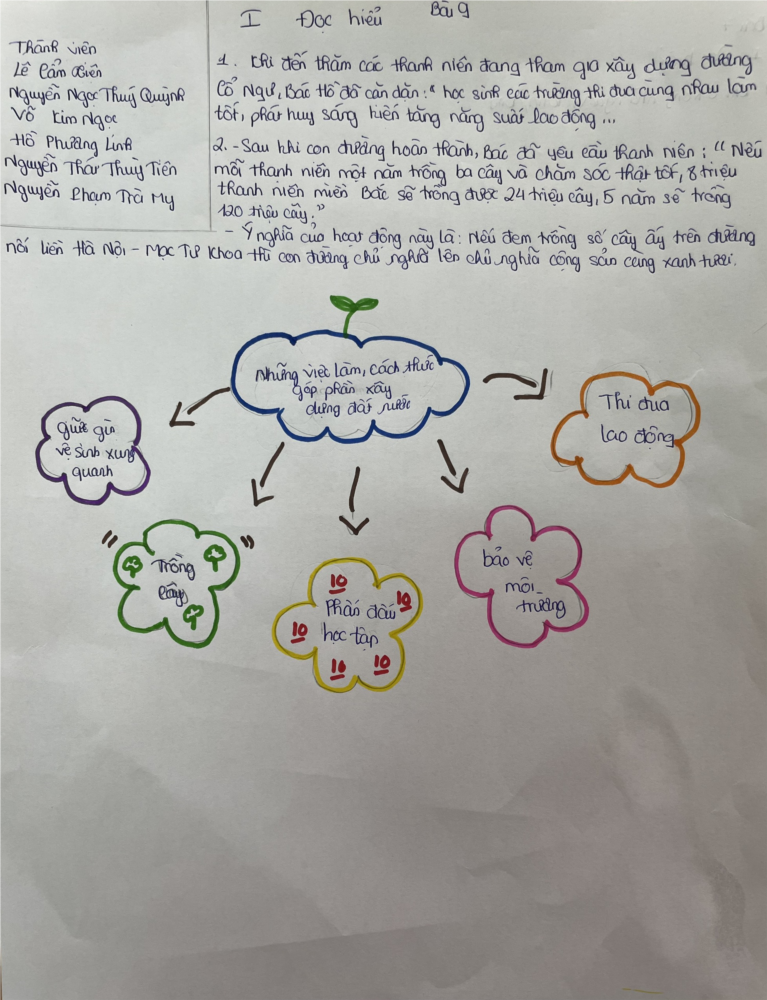 I Đọc hiểu Bài 9
Thành viên
Lê Cẩm Xiên
Nguyễn Ngọc Thuý Quỳnh
Võ Kim Ngọc
Hồ Phương Linh
Nguyễn Thái Thuỳ Tiên
Nguyễn Phạm Trà My
1. Khi đến thăm các thanh niên đang tham gia xây dựng đường
Cổ Ngư, Bác Hồ đã căn dặn: " học sinh các trường thi đua cùng nhau làm
tốt, phát huy sáng kiến tăng năng suất lao động ...
2. - Sau khi con đường hoàn thành, Bác đã yêu cầu thanh niên : " Nếu
mỗi thanh niên một năm trồng ba cây và chăm sóc thật tốt, 8 triệu
thanh niên miền Bắc sẽ trồng được 24 triệu cây, 5 năm sẽ trồng
120 triệu cây."
- Ý nghĩa của hoạt động này là: Nếu đem trồng số cây ấy trên đường
nối liền Hà Nội - Mạc Tư Khoa thì con đường chủ nghĩa lên chủ nghĩa cộng sản cùng xanh tươi.
Những việc làm, cách thức
góp phần xây
dựng đất nước
giữ gìn
vệ sinh xung
quanh
Thi đua
lao động
Trồng
cây
10
Phấn đấu 10
10 học tập
10 10
bảo vệ
môi
trường